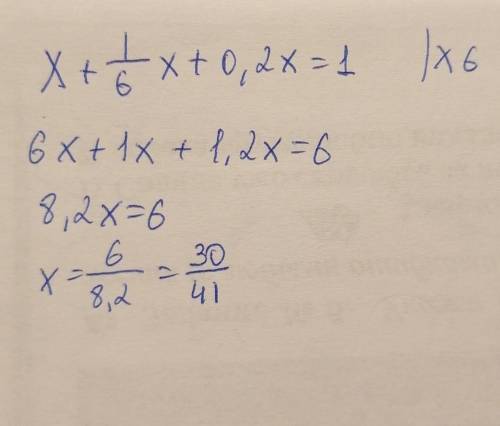 x + 1/6 x + 0,2x = 1 | x 6
6x + 1x + 1,2x = 6
8,2x = 6
x = 6/8,2 = 30/41